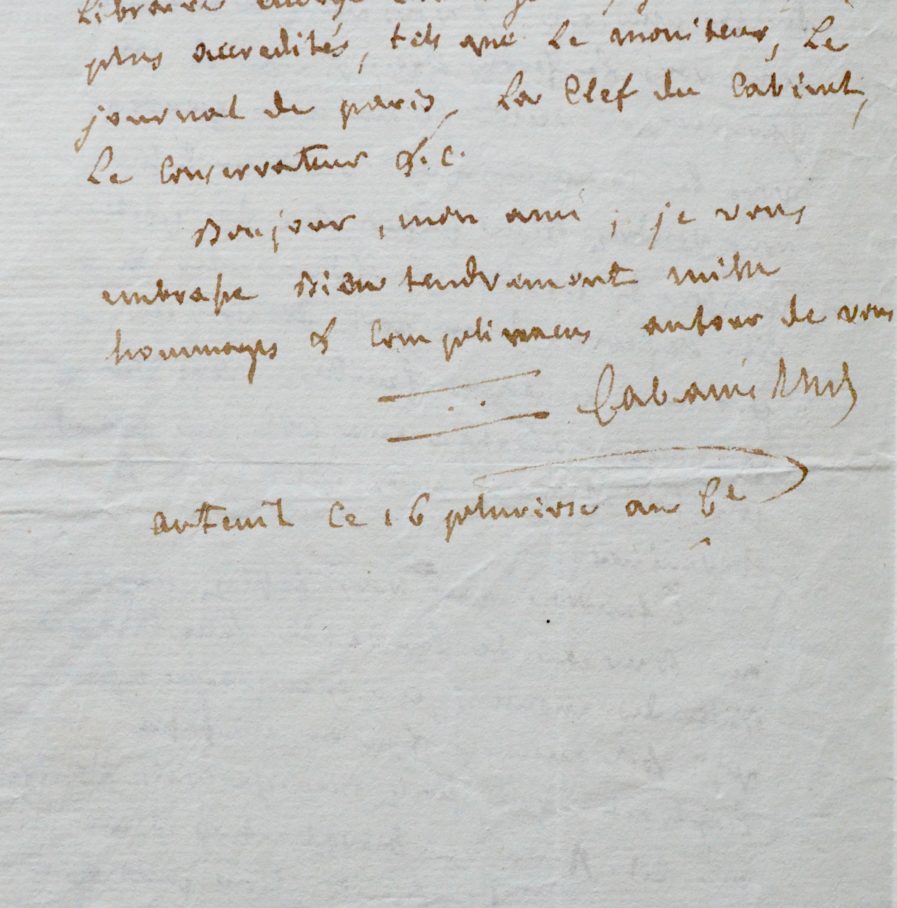 libraire
plus accrédités, tels que le moniteur, le
journal de paris, la Clef du Cabinet,
le Conservateur &.c.
Bonjour, mon ami ; je vous
embrasse bien tendrement mille
hommages & Complimens autour de vous
Cabanis
auteuil Ce 16 pluviose an 6e